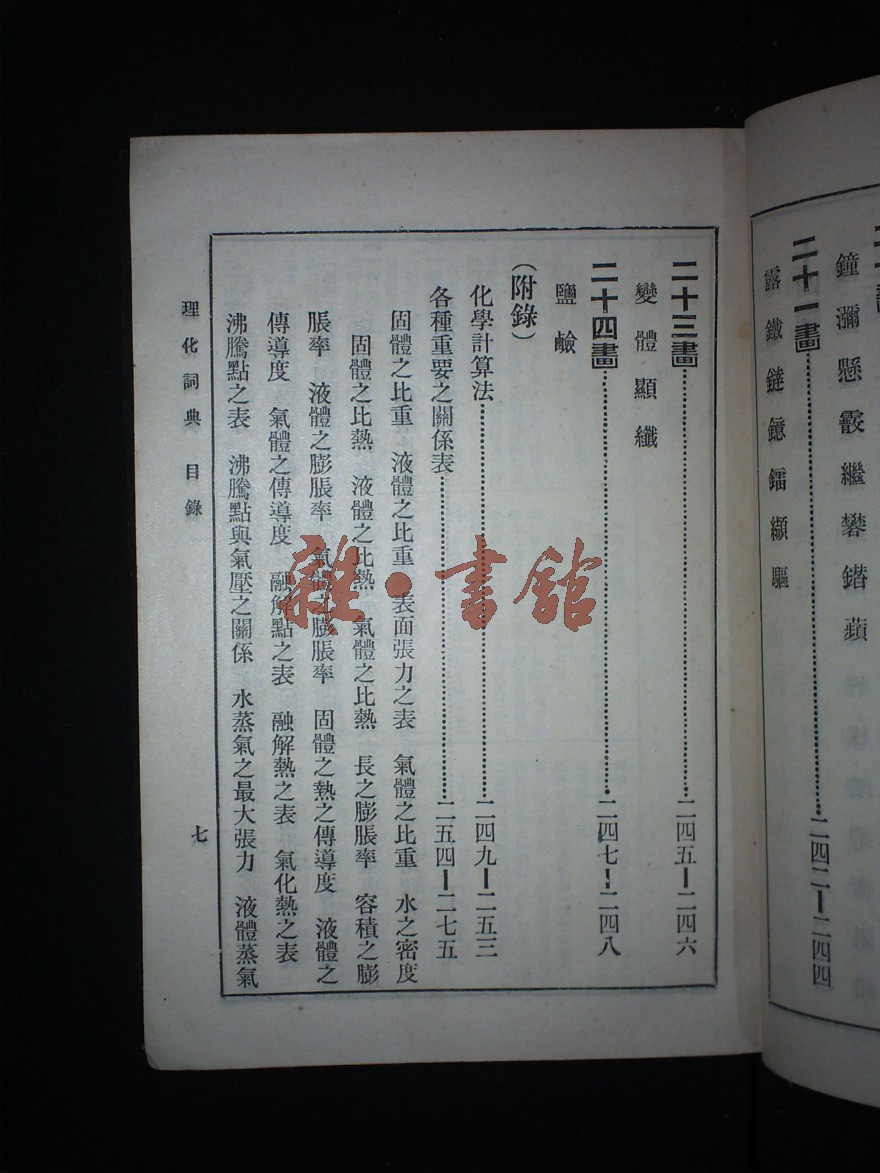 鐘瀰懸霰繼礬鐕蘋
二十一畫……二四二—二四四
露鐵鐽鐿鐳纈驅
二十三畫……二四五—二四六
變體顯纖
二十四畫……二四七—二四八
鹽鹼
（附錄）
化學計算法……二四九—二五三
各種重要之關係表……二五四—二七五
固體之比重　液體之比重　表面張力之表　氣體之比重　水之密度
固體之比熱　液體之比熱　氣體之比熱　長之膨脹率　容積之膨
脹率　液體之膨脹率　氣體之膨脹率　固體之熱之傳導度　液體之
傳導度　氣體之傳導度　融解點之表　融解熱之表　氣化熱之表
沸騰點之表　沸騰點與氣壓之關係　水蒸氣之最大張力　液體蒸氣
理化詞典　目錄　七
雜·書館